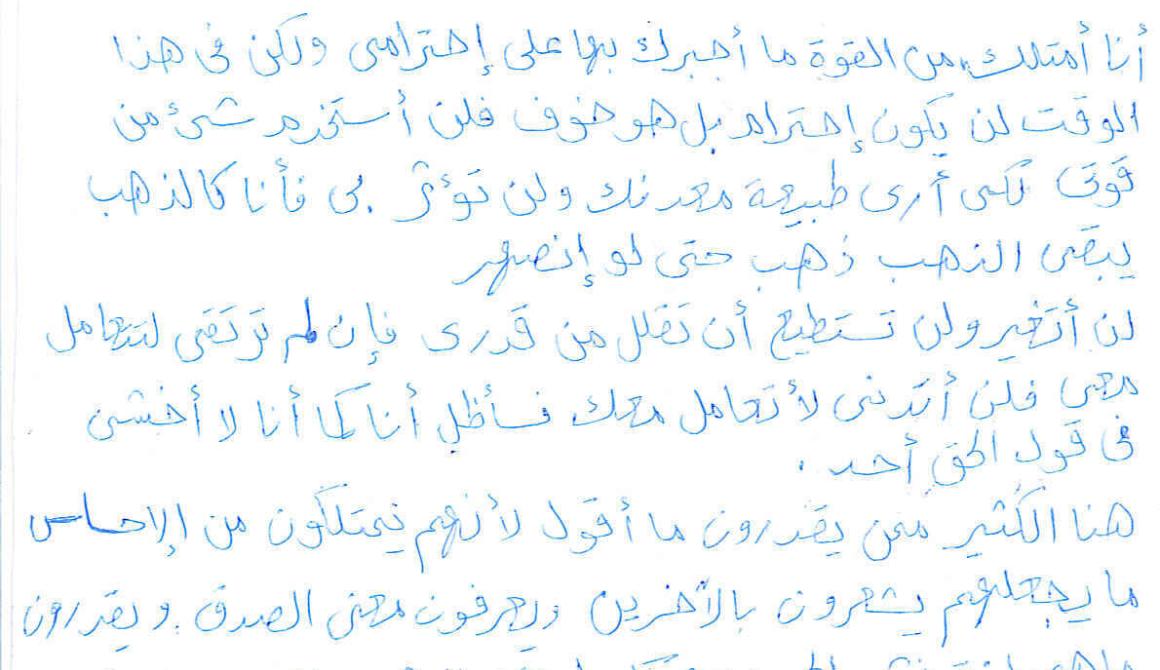 أنا أمتلك من القوة ما أجبرك بها على إحترامى ولكن فى هذا
الوقت لن يكون إحترام بل هو خوف فلن أستخدم شئ من
قوتى لكى أرى طبيعة معدنك ولن تؤثر بى فأنا كالذهب
يبقى الذهب ذهب حتى لو إنصهر
لن أتغير ولن تستطيع أن تقلل من قدرى فإن لم ترتقى لتتعامل
معى فلن أتدنى لأتعامل معك فسأظل أنا كما أنا لا أخشى
فى قول الحق أحد .
هنا الكثير ممن يقدرون ما أقول لأنهم يمتلكون من الإحساس
ما يجعلهم يشعرون بالأخرين ويعرفون معنى الصدق . ويقدرون